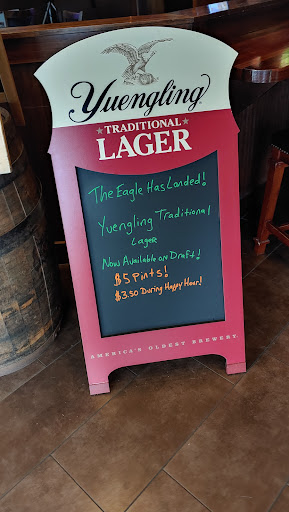 Yuengling
TRADITIONAL
LAGER
The Eagle Has Landed!
Yuengling Traditional
Lager
Now Available on Draft!
$5 Pints!
$3.50 During Happy Hour!
AMERICA'S OLDEST BREWERY.